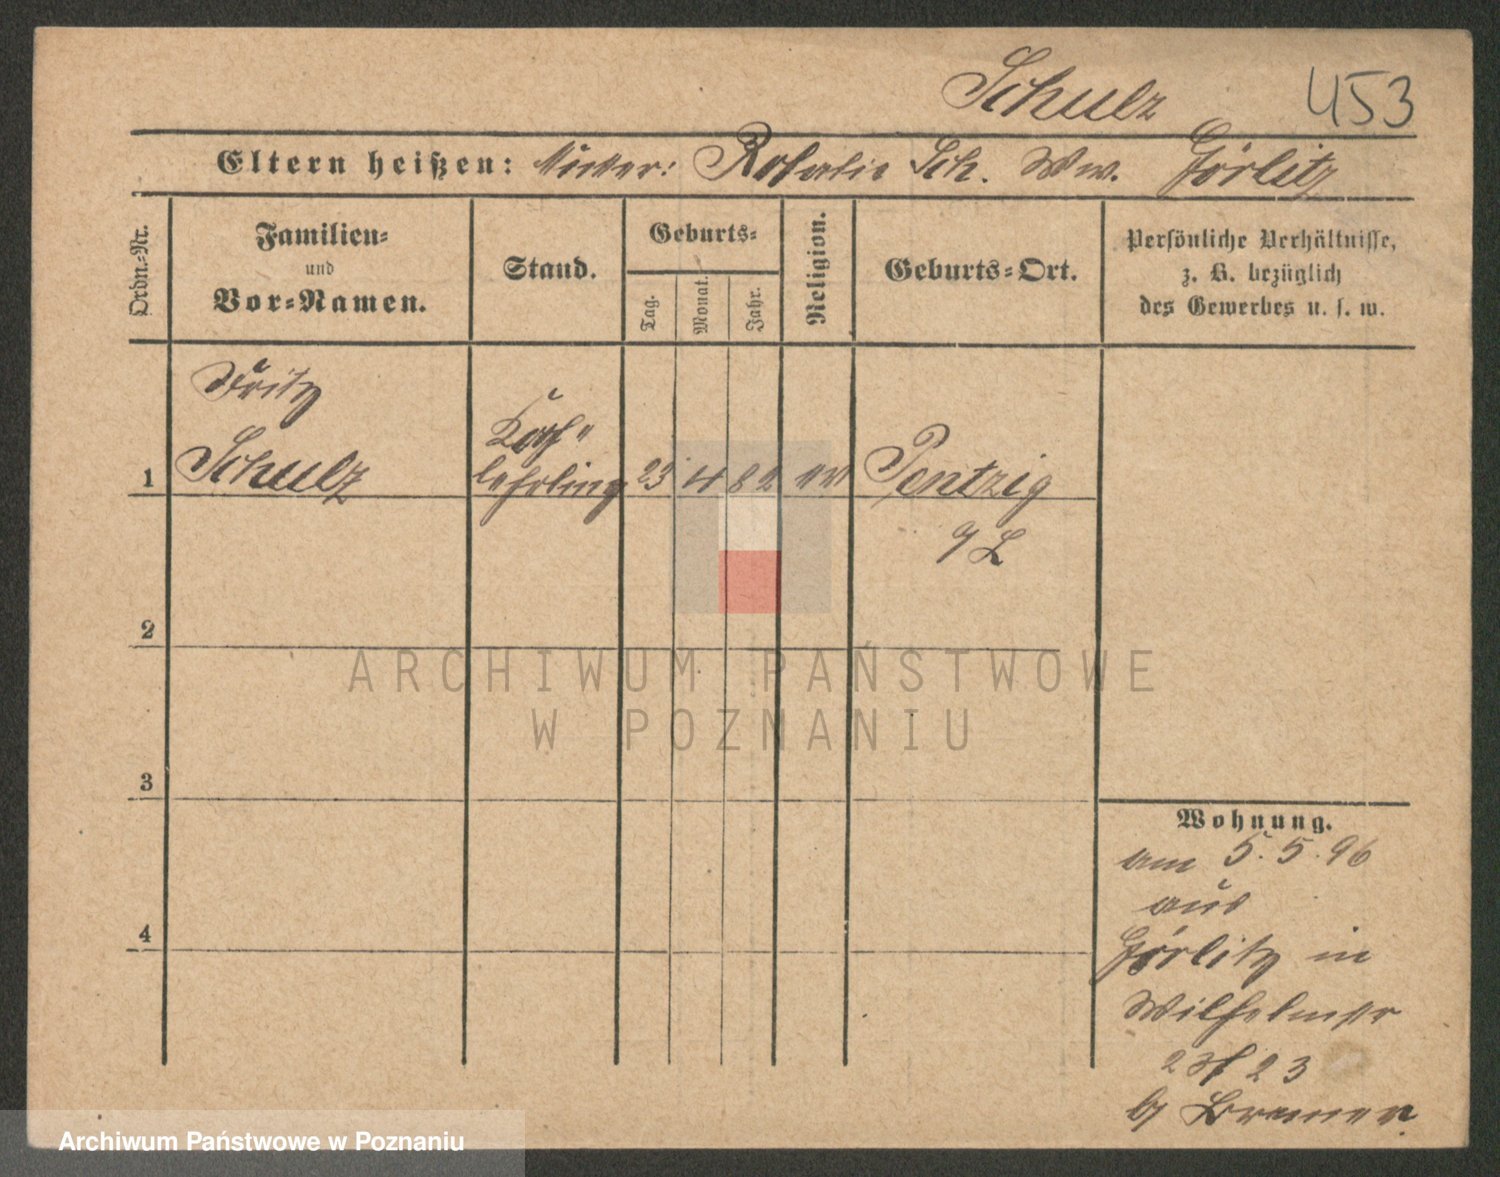 Schulz 453
Eltern heißen: Mutter: Rosalie Sch. Ww. Görlitz
Ordn.-Nr.
Familien-
und
Vor-Namen.
Stand.
Geburts-
Tag.
Monat.
Jahr.
Religion.
Geburts-Ort.
Persönliche Verhältnisse,
z. B. bezüglich
des Gewerbes u. s. w.
Fritz
1 Schulz
lehrling 23 4 82 ev Pentzig
2
3
4
Wohnung.
am 5.5.96
aus
Görlitz in
Wilhelmstr
23
b/ Bremer.
ARCHIWUM PAŃSTWOWE
W POZNANIU
Archiwum Państwowe w Poznaniu